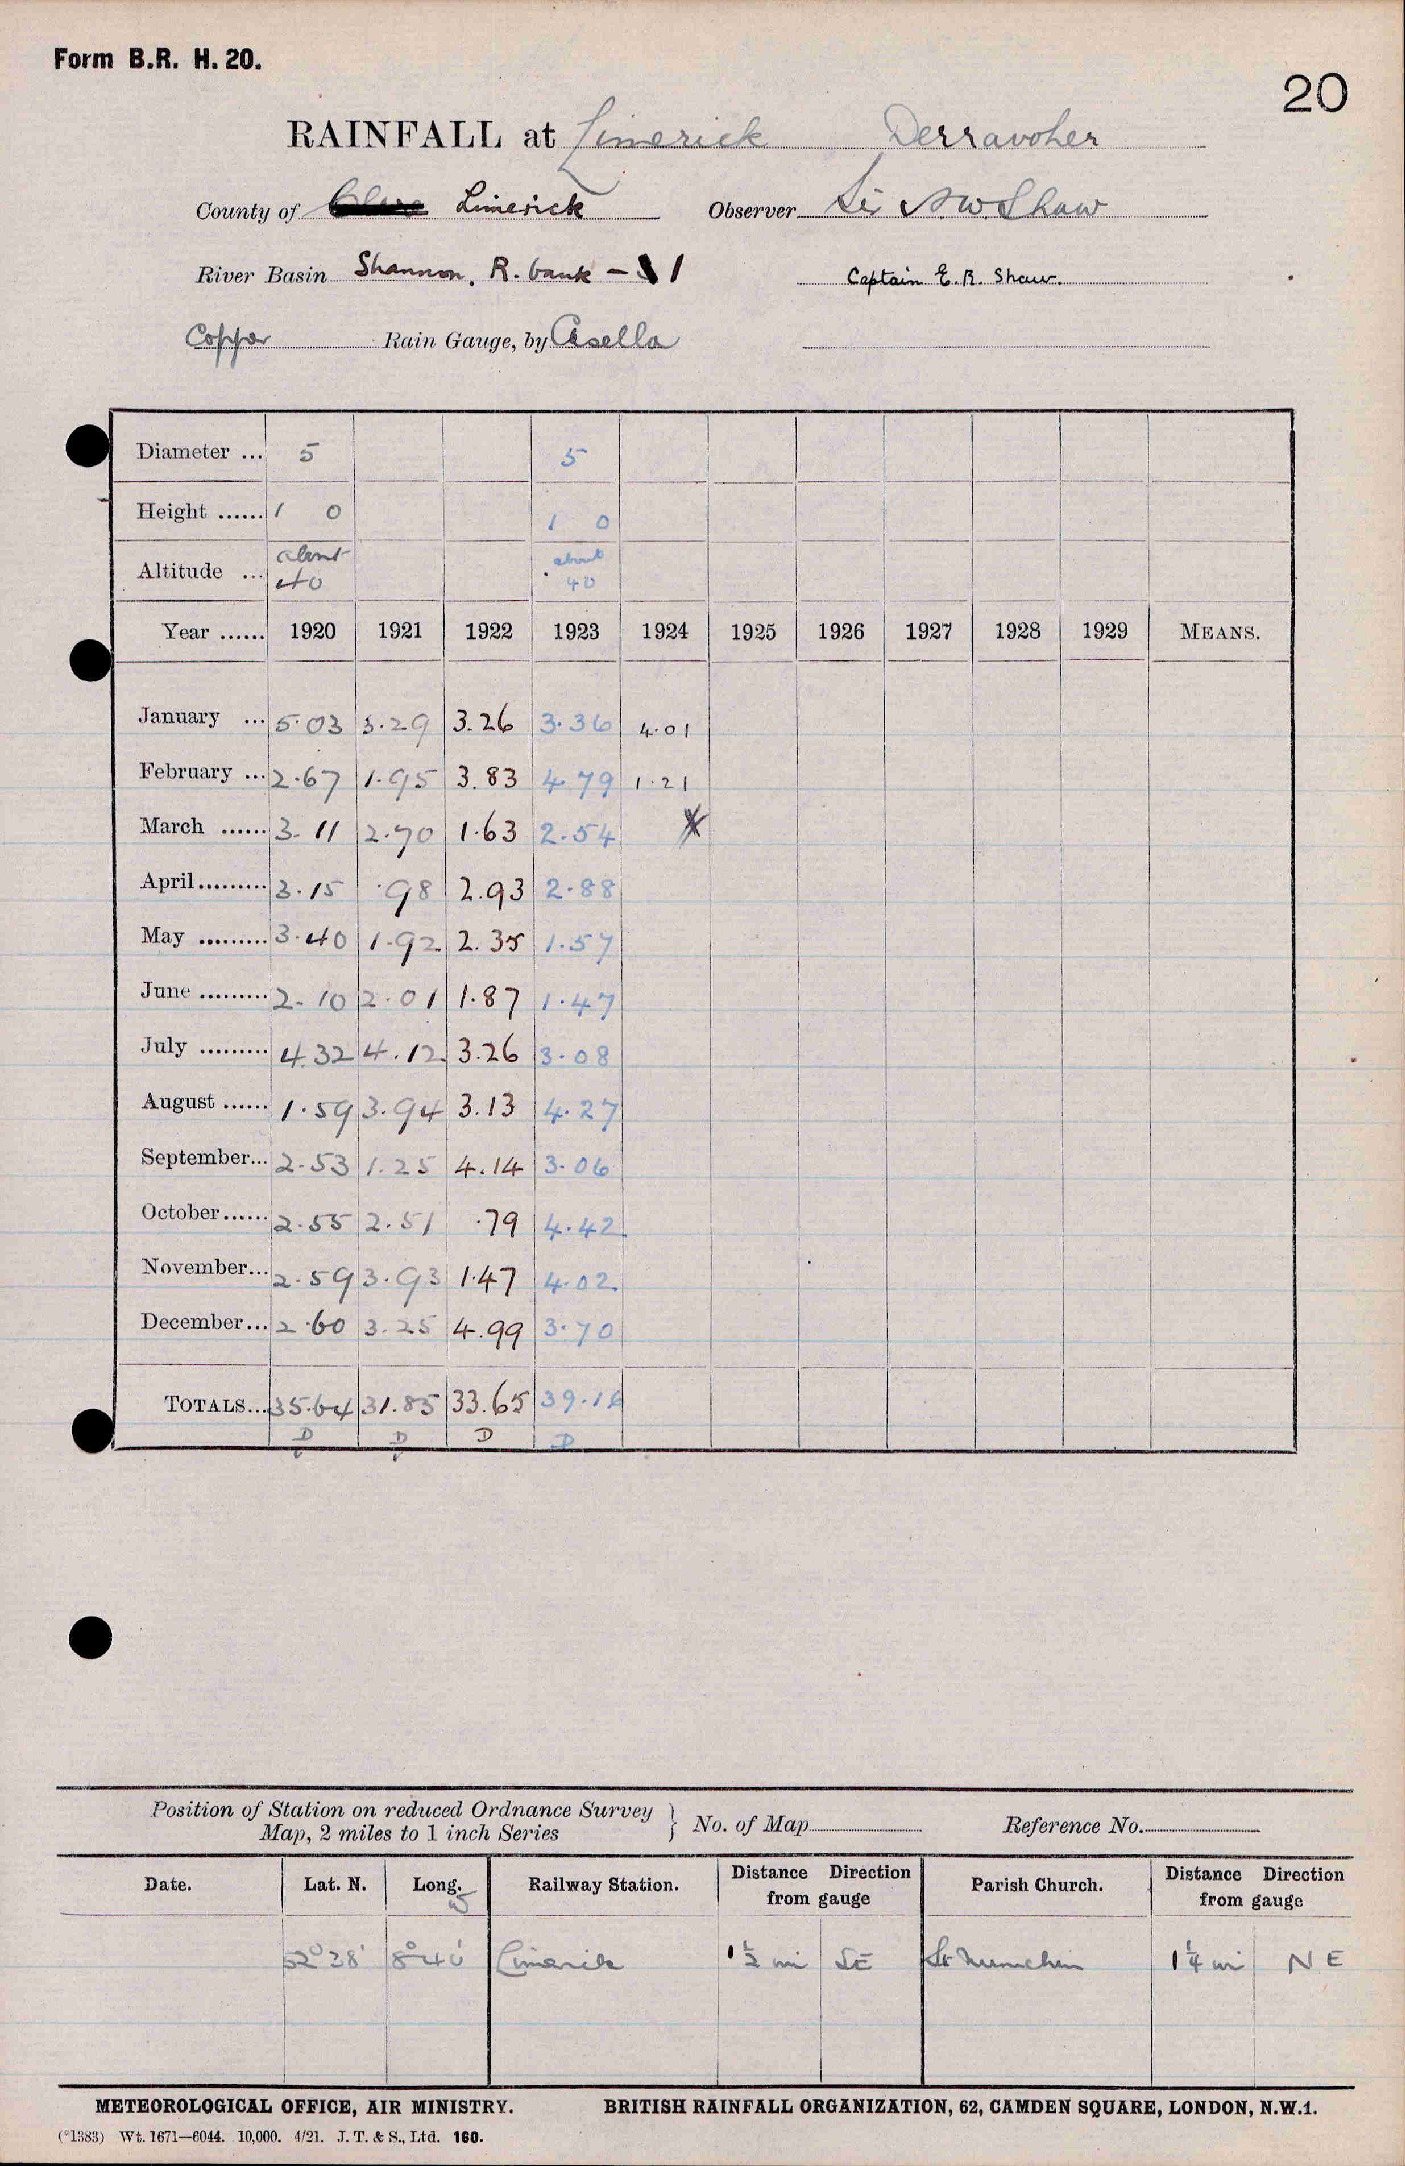 Form B.R. H. 20.
20
RAINFALL at Limerick Derravoher
County of Limerick Observer Sir A W Shaw
River Basin Shannon, R. bank – 1 Captain E. B. Shaw.
Copper Rain Gauge, by Casella
Diameter ... 5 5
Height ...... 1 0 1 0
Altitude ... about 40 about 40
Year ...... 1920 1921 1922 1923 1924 1925 1926 1927 1928 1929 MEANS.
January ... 5.03 3.29 3.26 3.36 4.01
February ... 2.67 1.95 3.83 4.79 1.21
March ...... 3.11 2.70 1.63 2.54
April ......... 3.15 .98 2.93 2.88
May ......... 3.40 1.92 2.35 1.57
June ......... 2.10 2.01 1.87 1.47
July ......... 4.32 4.12 3.26 3.08
August ...... 1.59 3.94 3.13 4.27
September... 2.53 1.25 4.14 3.06
October...... 2.55 2.51 .79 4.42
November... 2.59 3.93 1.47 4.02
December... 2.60 3.25 4.99 3.70
TOTALS... 35.64 31.85 33.65 39.16
D D D D
Position of Station on reduced Ordnance Survey
Map, 2 miles to 1 inch Series } No. of Map Reference No.
Date. Lat. N. Long. W Railway Station. Distance Direction from gauge Parish Church. Distance Direction from gauge
52° 38' 8° 40' Limerick 1 1/2 mi SE St Munchin 1 1/4 mi NE
METEOROLOGICAL OFFICE, AIR MINISTRY. BRITISH RAINFALL ORGANIZATION, 62, CAMDEN SQUARE, LONDON, N.W.1.
(*1383) Wt. 1671—6044. 10,000. 4/21. J. T. & S., Ltd. 160.